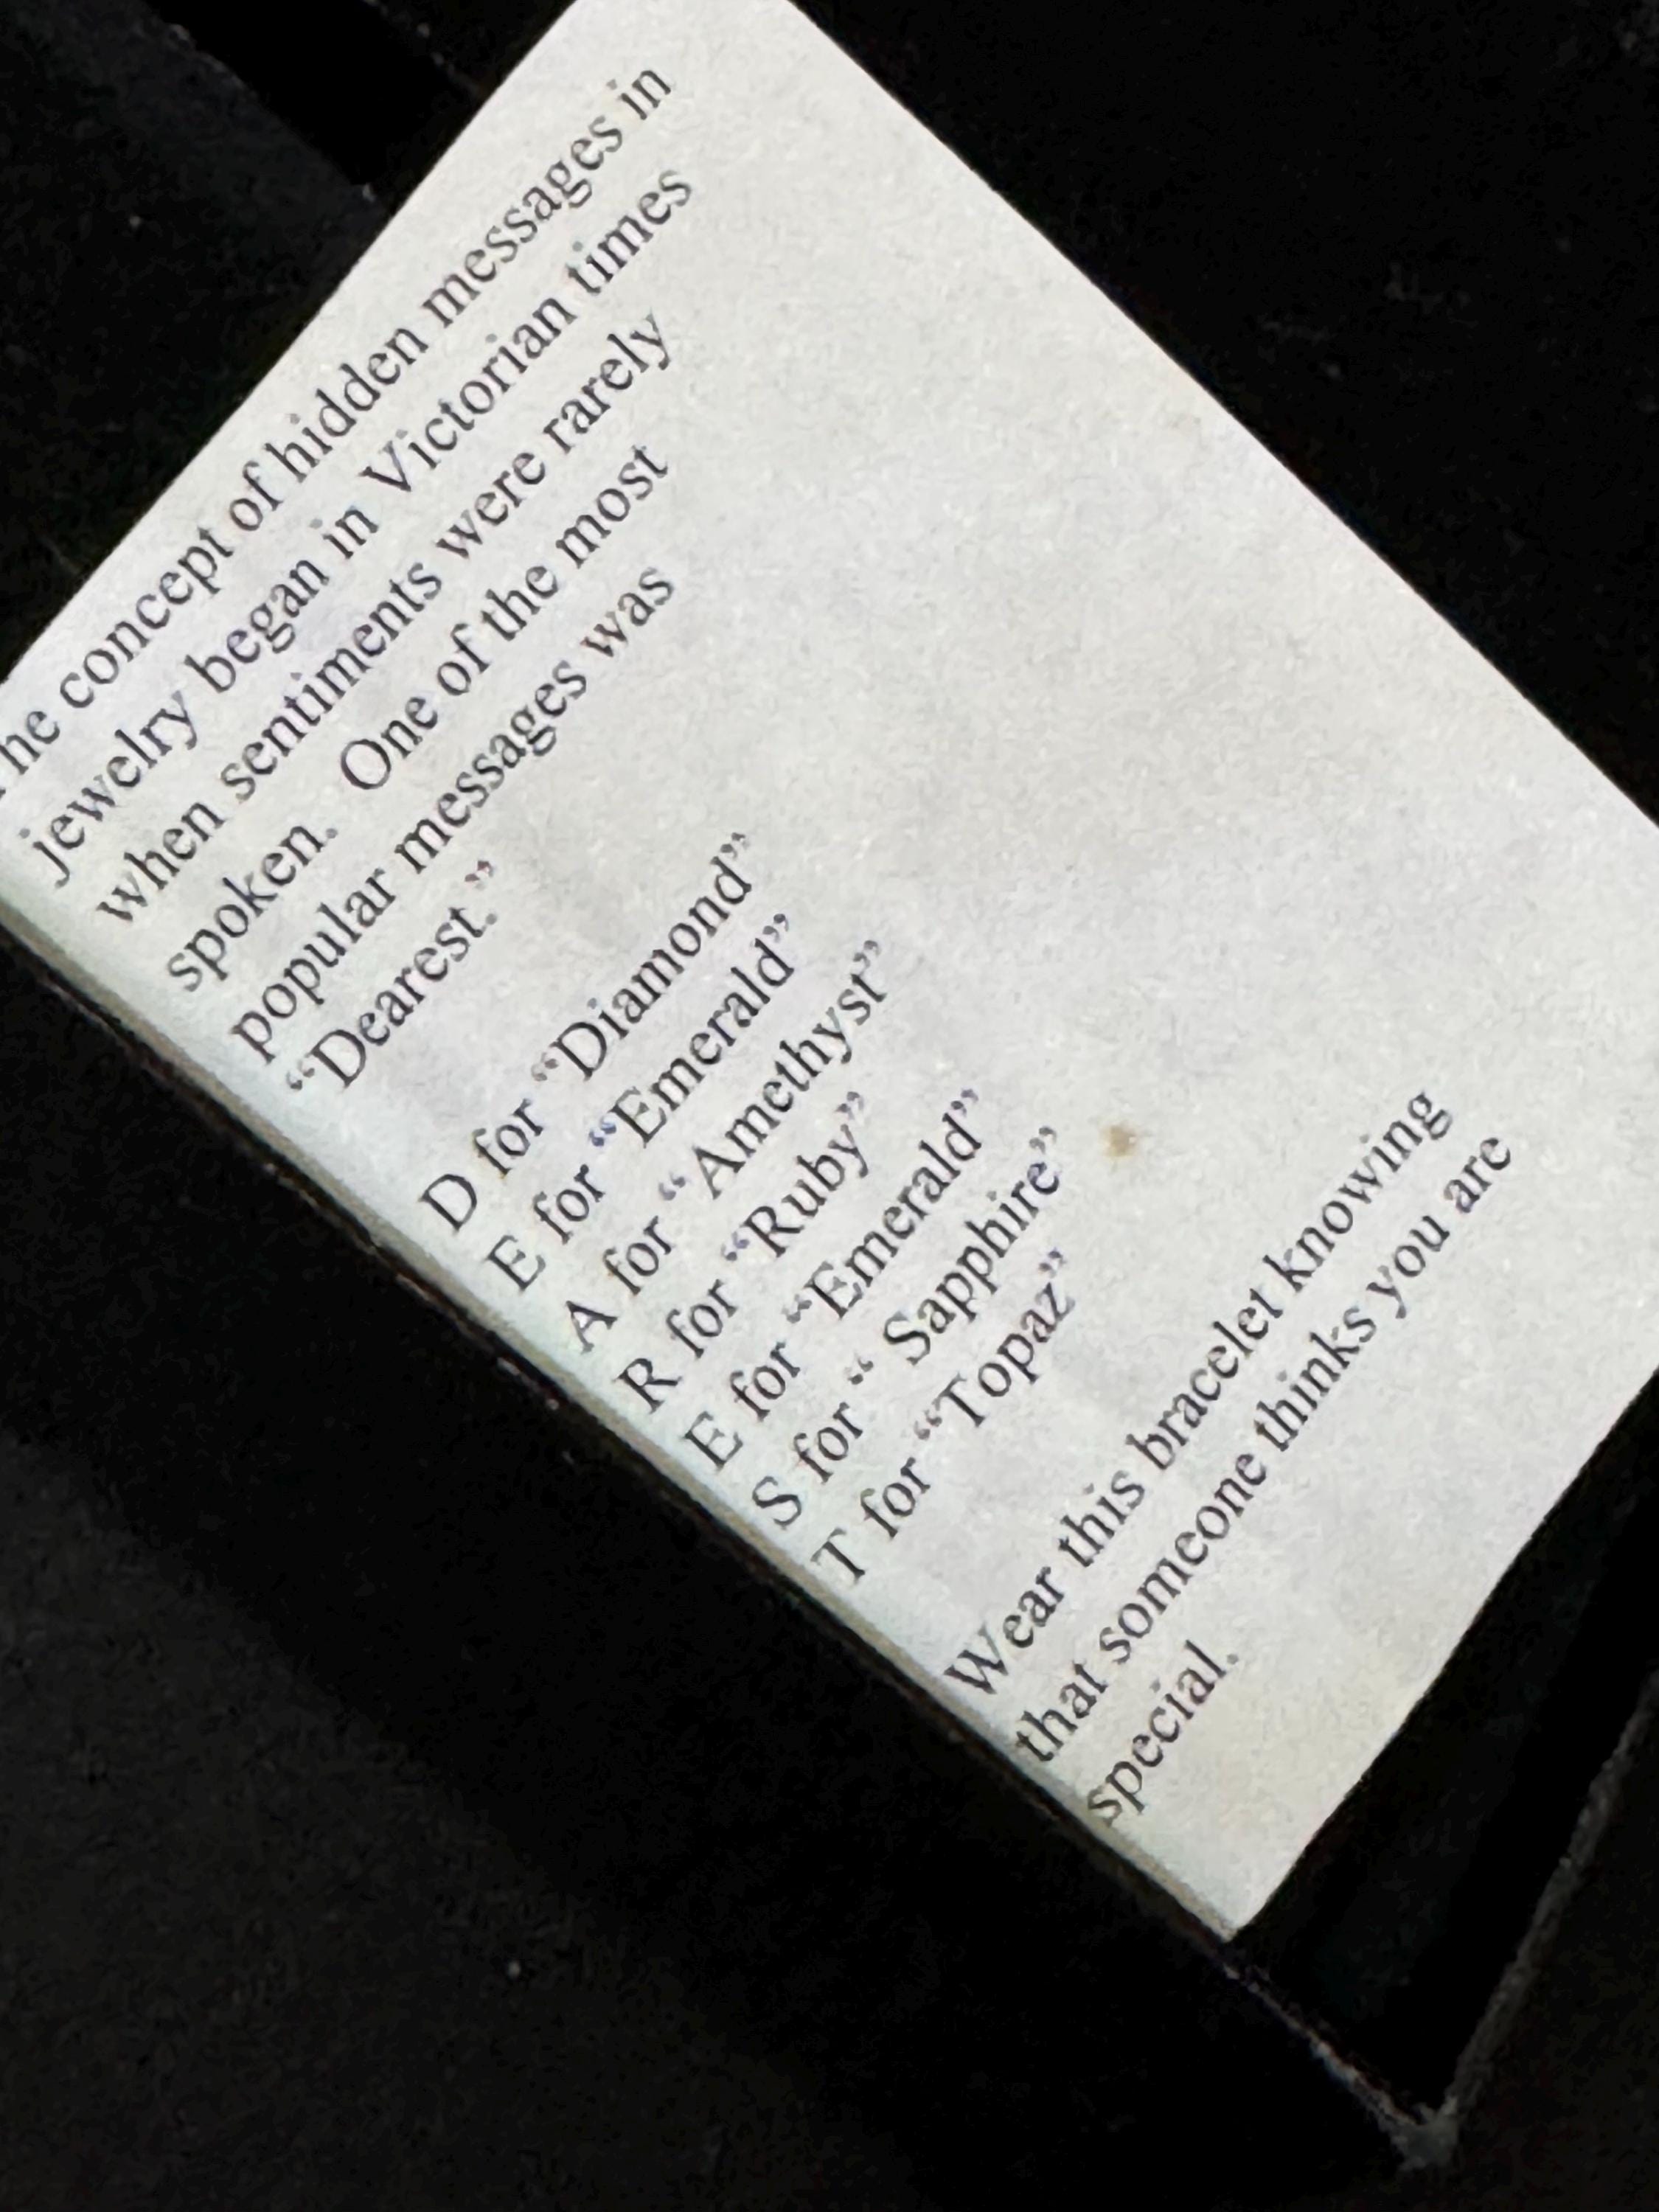 The concept of hidden messages in
jewelry began in Victorian times
when sentiments were rarely
spoken. One of the most
popular messages was
“Dearest.”
D for “Diamond”
E for “Emerald”
A for “Amethyst”
R for “Ruby”
E for “Emerald”
S for “ Sapphire”
T for “Topaz”
Wear this bracelet knowing
that someone thinks you are
special.